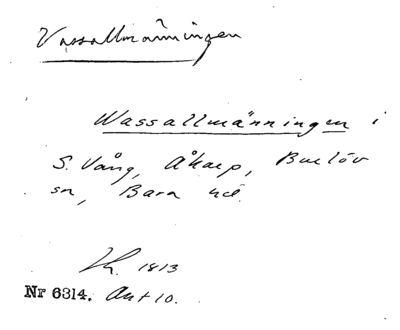 Vassallmänningen
Wassallmänningen i
S. Vång, Åkarp, Burlöv
sn, Bara hd.
Lh. 1813
Nr 6314. Ant 10.